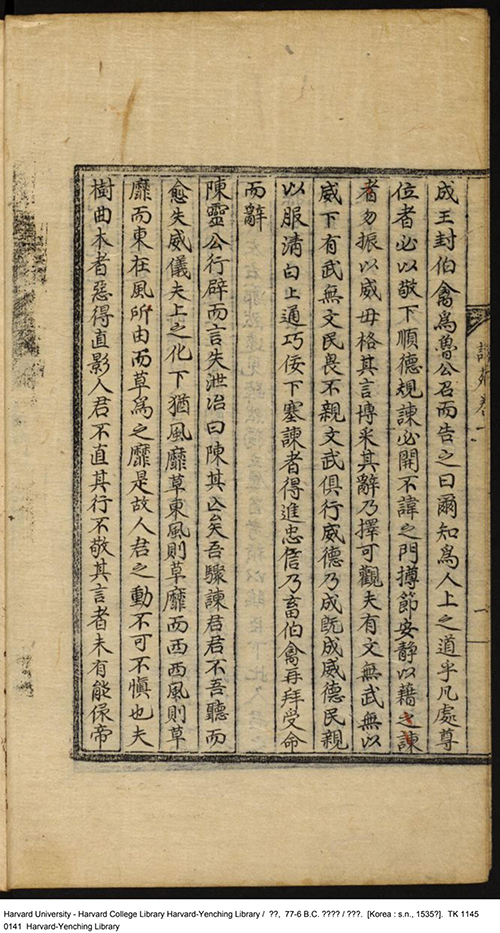 成王封伯禽爲魯公召而告之曰爾知爲人上之道乎凡處尊
位者必以敬下順德規諫必開不諱之門撙節安靜以藉之諫
者勿振以威毋格其言博采其辭乃擇可觀夫有文無武無以
威下有武無文民畏不親文武俱行威德乃成旣成威德民親
以服清白上通巧佞下塞諫者得進忠信乃畜伯禽再拜受命
而辭
陳靈公行辟而言失泄冶曰陳其亾矣吾驟諫君君不吾聽而
愈失威儀夫上之化下猶風靡草東風則草靡而西西風則草
靡而東在風所由而草爲之靡是故人君之動不可不愼也夫
樹曲木者惡得直影人君不直其行不敬其言者未有能保帝
Harvard University - Harvard College Library Harvard-Yenching Library / ??, 77-6 B.C. ???? / ???. [Korea : s.n., 1535?]. TK 1145
0141 Harvard-Yenching Library